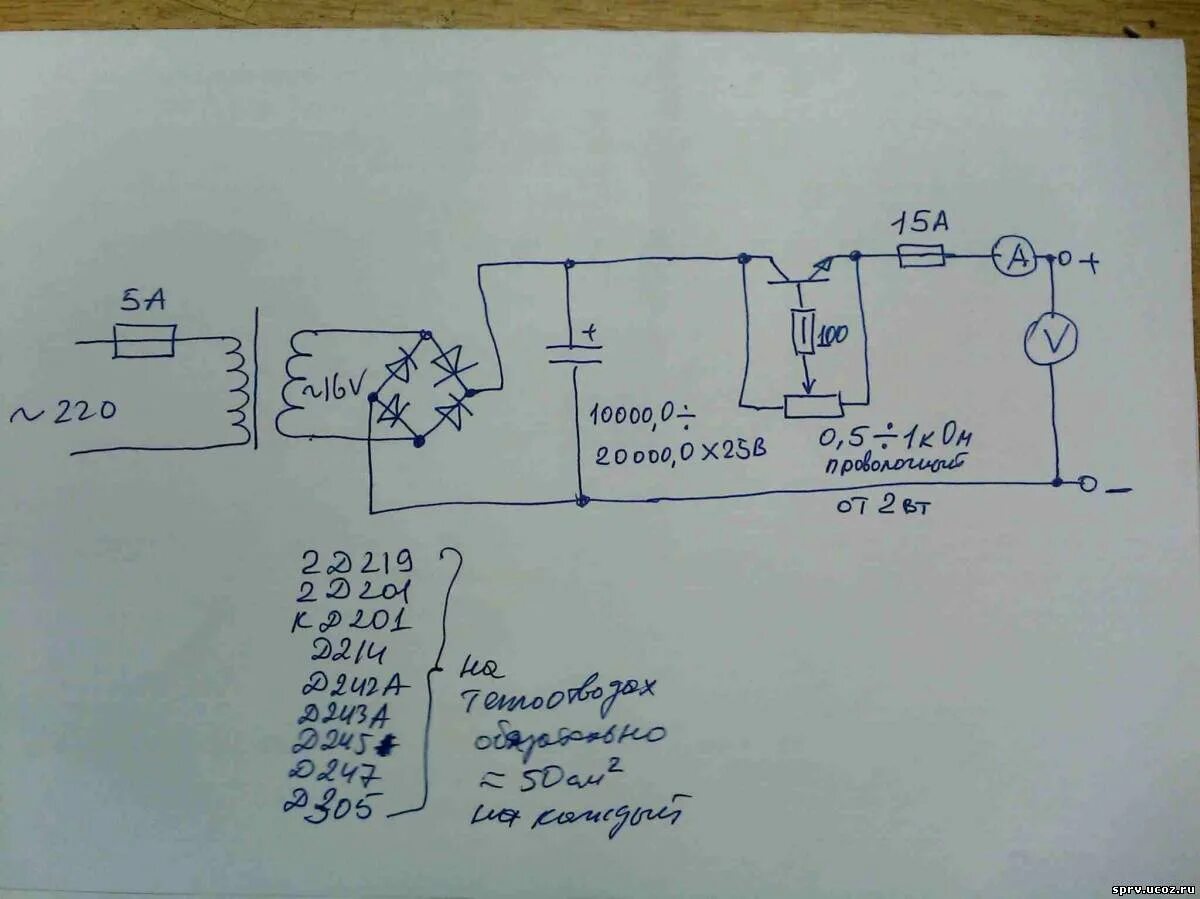 5А
~220
~16V
+
10000,0÷
20000,0х25В
100
0,5÷1кОм
проволочный
от 2вт
15А
А
+
V
−
2Д219
2Д201
кД201
Д214
Д242А
Д243А
Д245
Д247
Д305
на
теплоотводах
обязательно
= 50см²
на каждый
sprv.ucoz.ru